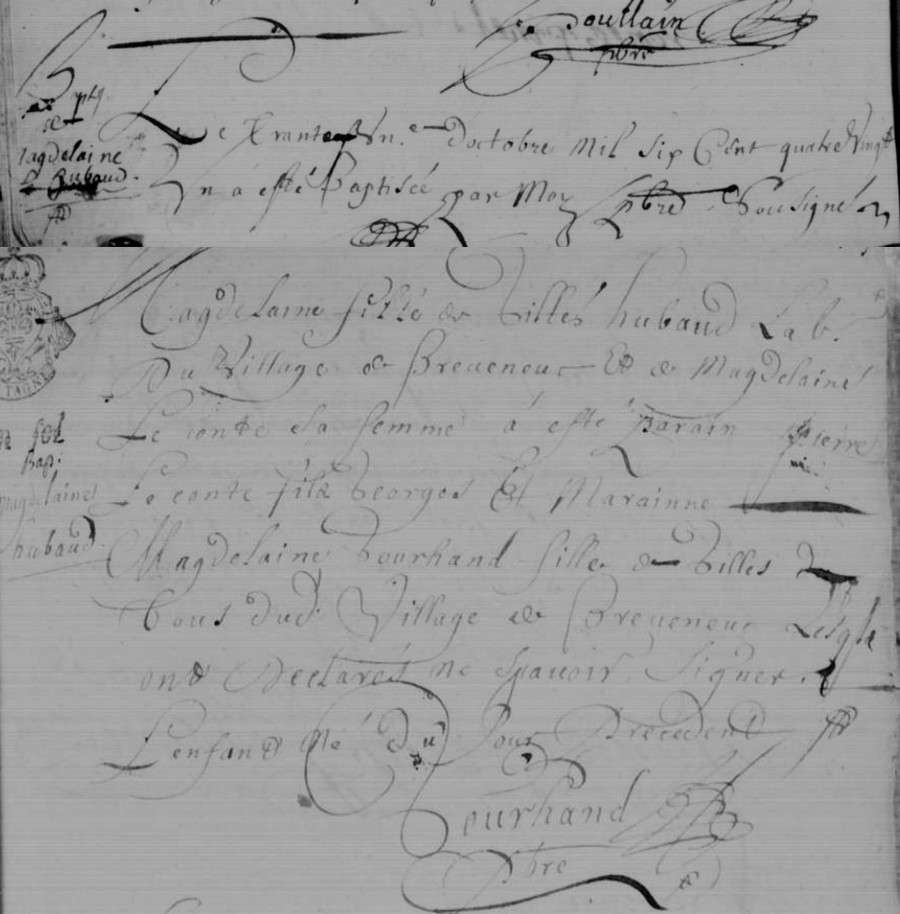 poullain
pbre
Bapt
de
magdelaine
hubaud
Le Trante & un.e doctobre Mil Six Cent quatre Vingt
Un a esté Baptisée par Moy pbre Sousigné
Magdelaine fille de Gilles hubaud Lab.
Du Village de Breueneuc Et de Magdelaine
Le conte sa femme a esté parain pierre
Le conte fils Georges Et Marainne
Magdelaine Gourhand fille de Gilles
Tous dud. Village de Breueneuc Lesqls
ont Declarés ne sçauoir Signer.
Bap:
magdelaine
hubaud
L'enfant Né du Jour Precedent
Gourhand
pbre